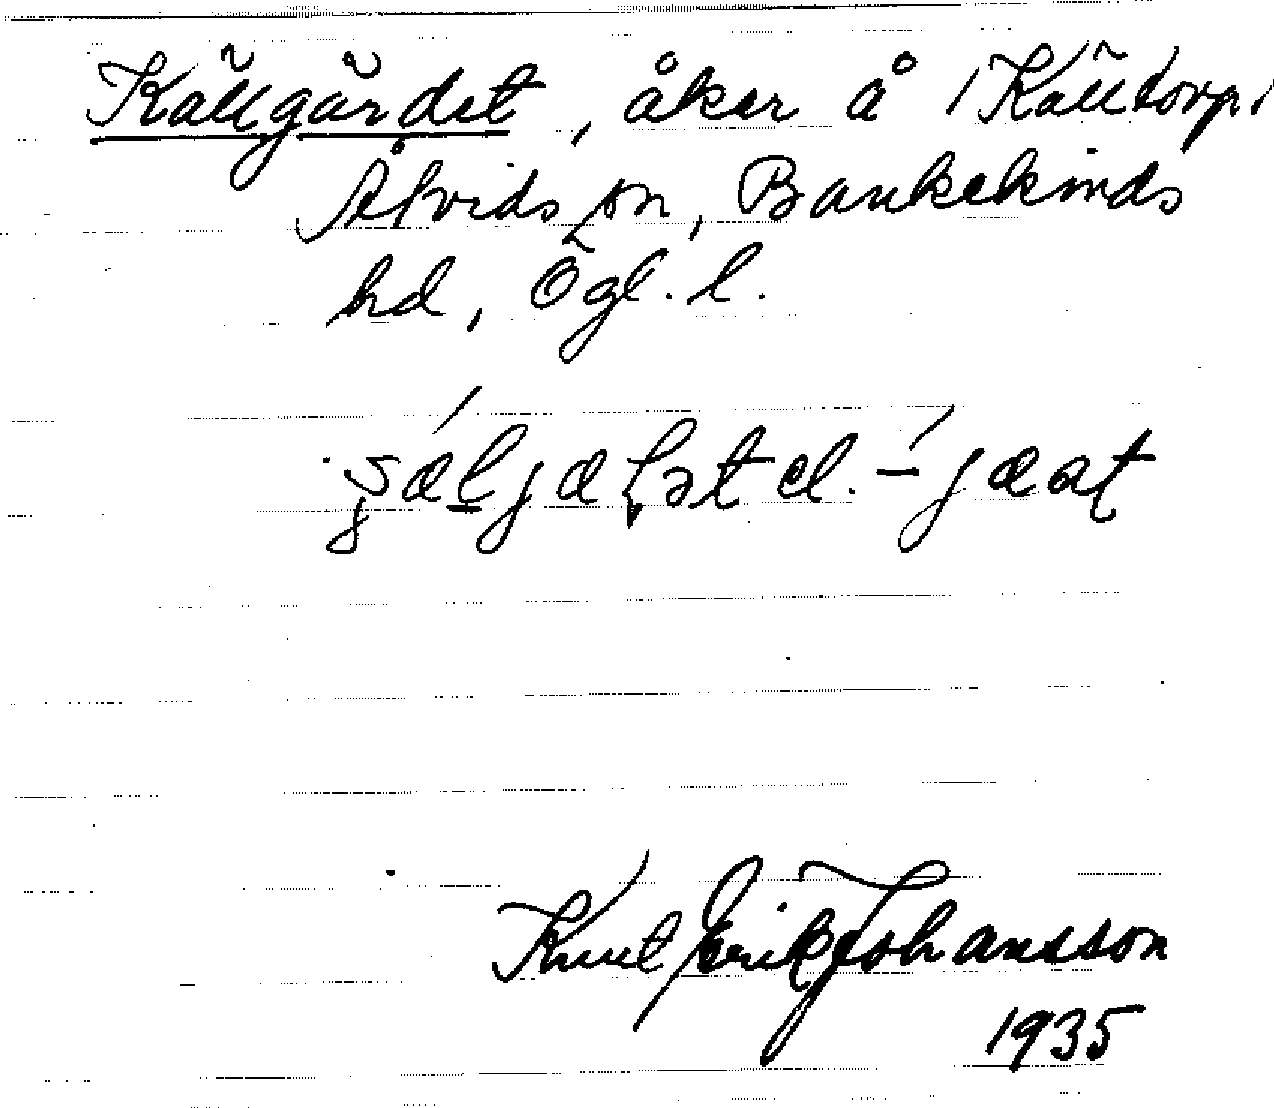 Källgärdet, åker å Källtorp,
Åtvids sn, Bankekinds
hd, Ögl. l.
el.
Knut Erik Johansson
1935